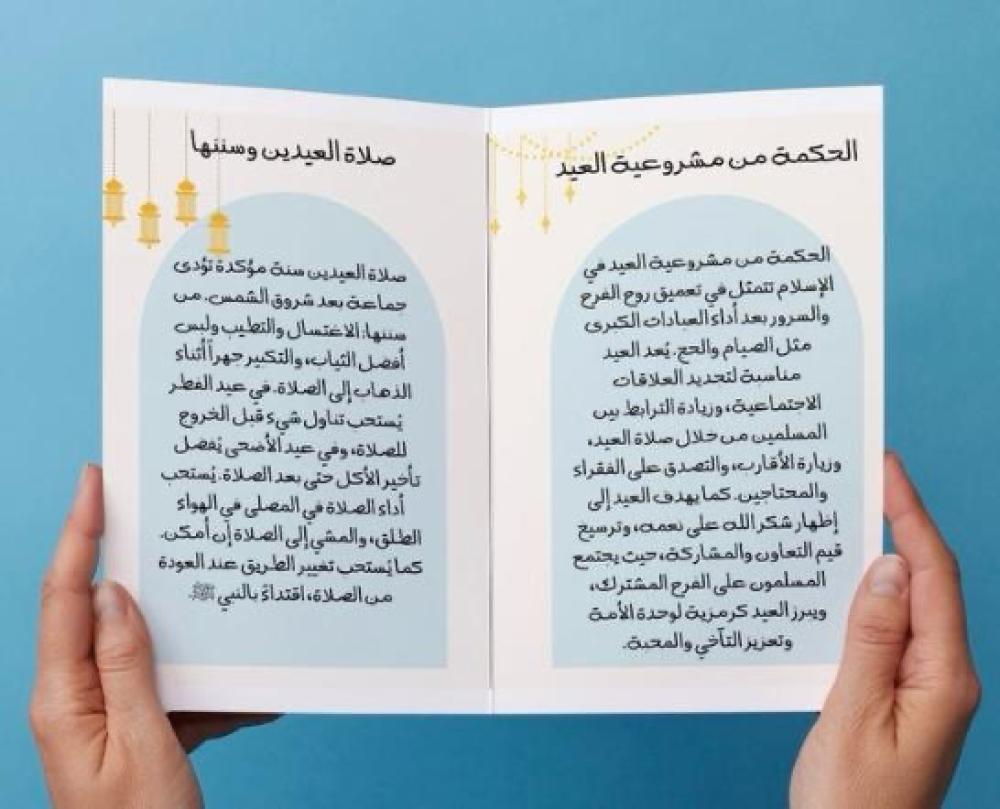 الحكمة من مشروعية العيد
الحكمة من مشروعية العيد في
الإسلام تتمثل في تعميق روح الفرح
والسرور بعد أداء العبادات الكبرى
مثل الصيام والحج. يُعد العيد
مناسبة لتجديد العلاقات
الاجتماعية، وزيادة الترابط بين
المسلمين من خلال صلاة العيد،
وزيارة الأقارب، والتصدق على الفقراء
والمحتاجين. كما يهدف العيد إلى
إظهار شكر الله على نعمه، وترسيخ
قيم التعاون والمشاركة، حيث يجتمع
المسلمون على الفرح المشترك،
ويبرز العيد كرمزية لوحدة الأمة
وتعزيز التآخي والمحبة.
صلاة العيدين وسننها
صلاة العيدين سنة مؤكدة تؤدى
جماعة بعد شروق الشمس. من
سننها: الاغتسال والتطيب ولبس
أفضل الثياب، والتكبير جهراً أثناء
الذهاب إلى الصلاة. في عيد الفطر
يُستحب تناول شيء قبل الخروج
للصلاة، وفي عيد الأضحى يُفضل
تأخير الأكل حتى بعد الصلاة. يُستحب
أداء الصلاة في المصلى في الهواء
الطلق، والمشي إلى الصلاة إن أمكن.
كما يُستحب تغيير الطريق عند العودة
من الصلاة، اقتداءً بالنبي ﷺ.